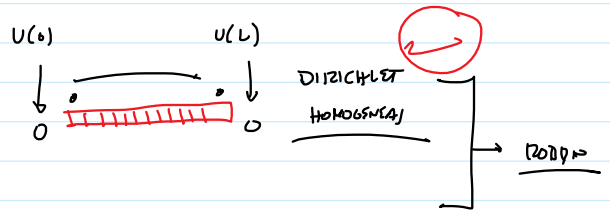 U(0)
U(L)
0
0
DIRICHLET
HOMOGENEAS
ROBIN